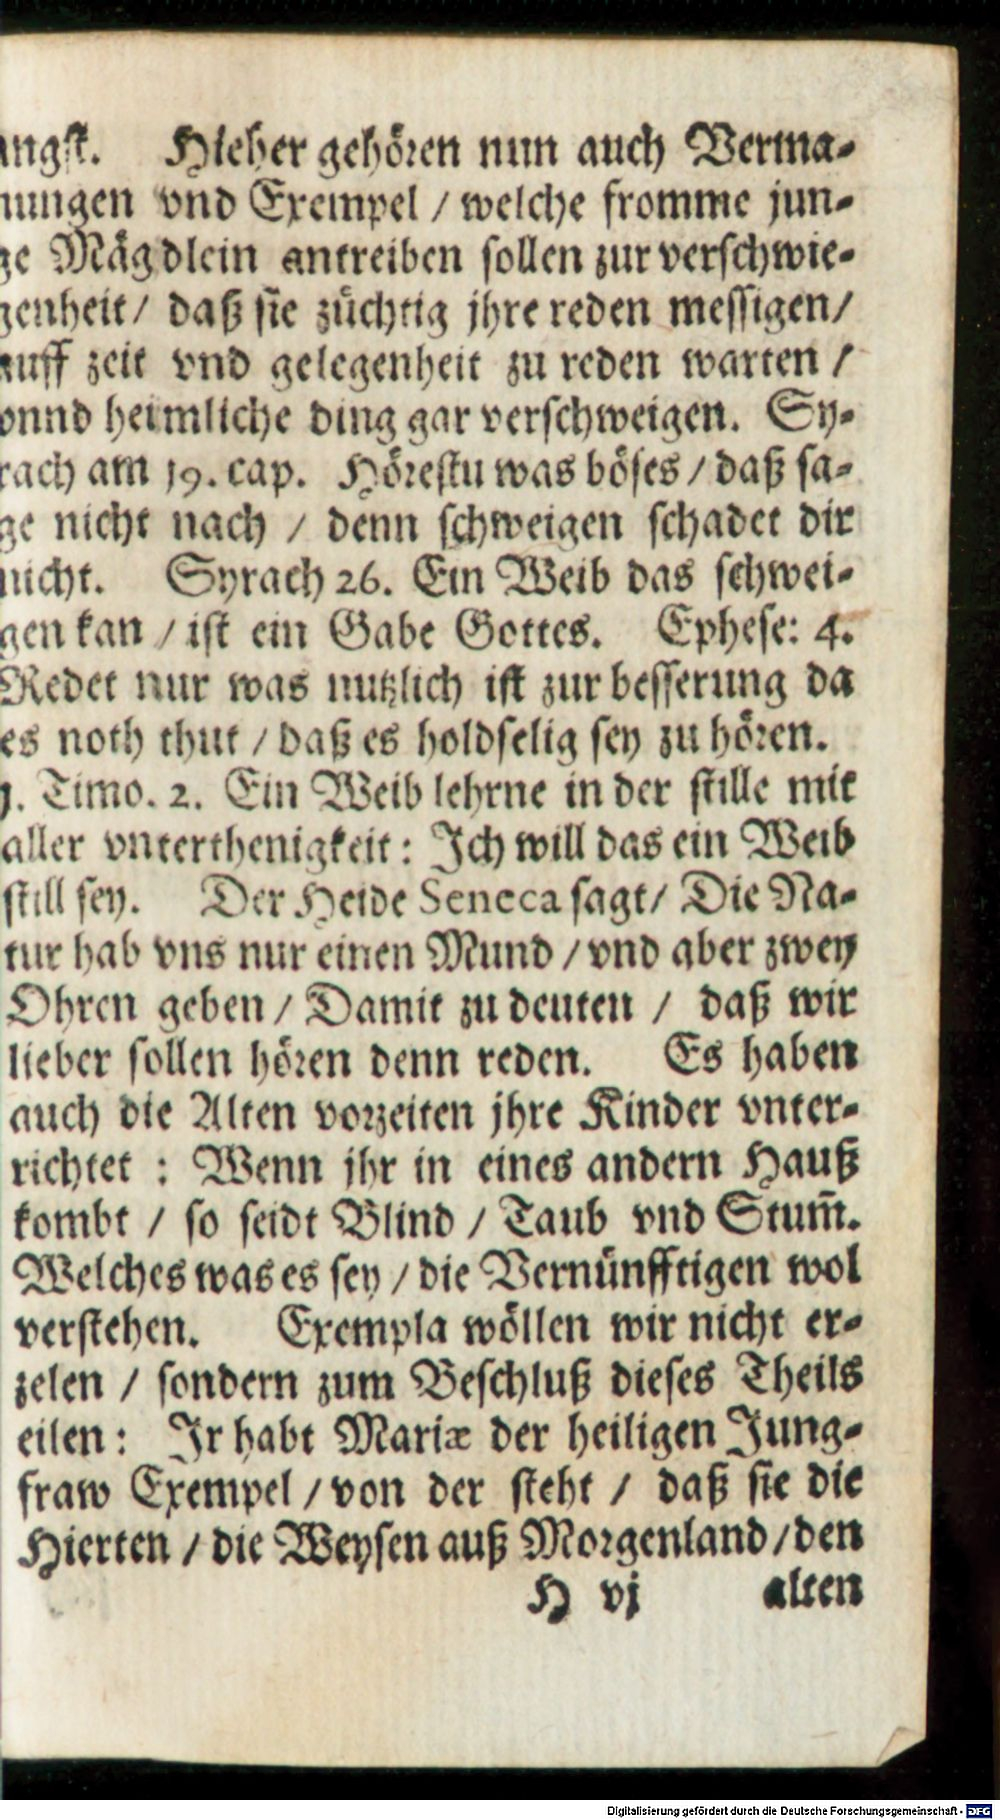 angst. Hieher gehören nun auch Verma-
nungen vnd Exempel / welche fromme jun-
ge Mägdlein antreiben sollen zur verschwie-
genheit / daß sie züchtig jhre reden messigen /
auff zeit vnd gelegenheit zu reden warten /
vnnd heimliche ding gar verschweigen. Sy-
rach am 19. cap. Hörestu was böses / daß sa-
ge nicht nach / denn schweigen schadet dir
nicht. Syrach 26. Ein Weib das schwei-
gen kan / ist ein Gabe Gottes. Ephese: 4.
Redet nur was nutzlich ist zur besserung da
es noth thut / daß es holdselig sey zu hören.
1. Timo. 2. Ein Weib lehrne in der stille mit
aller vnterthenigkeit: Ich will das ein Weib
still sey. Der Heide Seneca sagt / Die Na-
tur hab vns nur einen Mund / vnd aber zwey
Ohren geben / Damit zu deuten / daß wir
lieber sollen hören denn reden. Es haben
auch die Alten vorzeiten jhre Kinder vnter-
richtet : Wenn jhr in eines andern Hauß
kombt / so seidt Blind / Taub vnd Stum̄.
Welches was es sey / die Vernünfftigen wol
verstehen. Exempla wöllen wir nicht er-
zelen / sondern zum Beschluß dieses Theils
eilen: Ir habt Mariæ der heiligen Jung-
fraw Exempel / von der steht / daß sie die
Hierten / die Weysen auß Morgenland / den
H vj alten
Digitalisierung gefördert durch die Deutsche Forschungsgemeinschaft - DFG